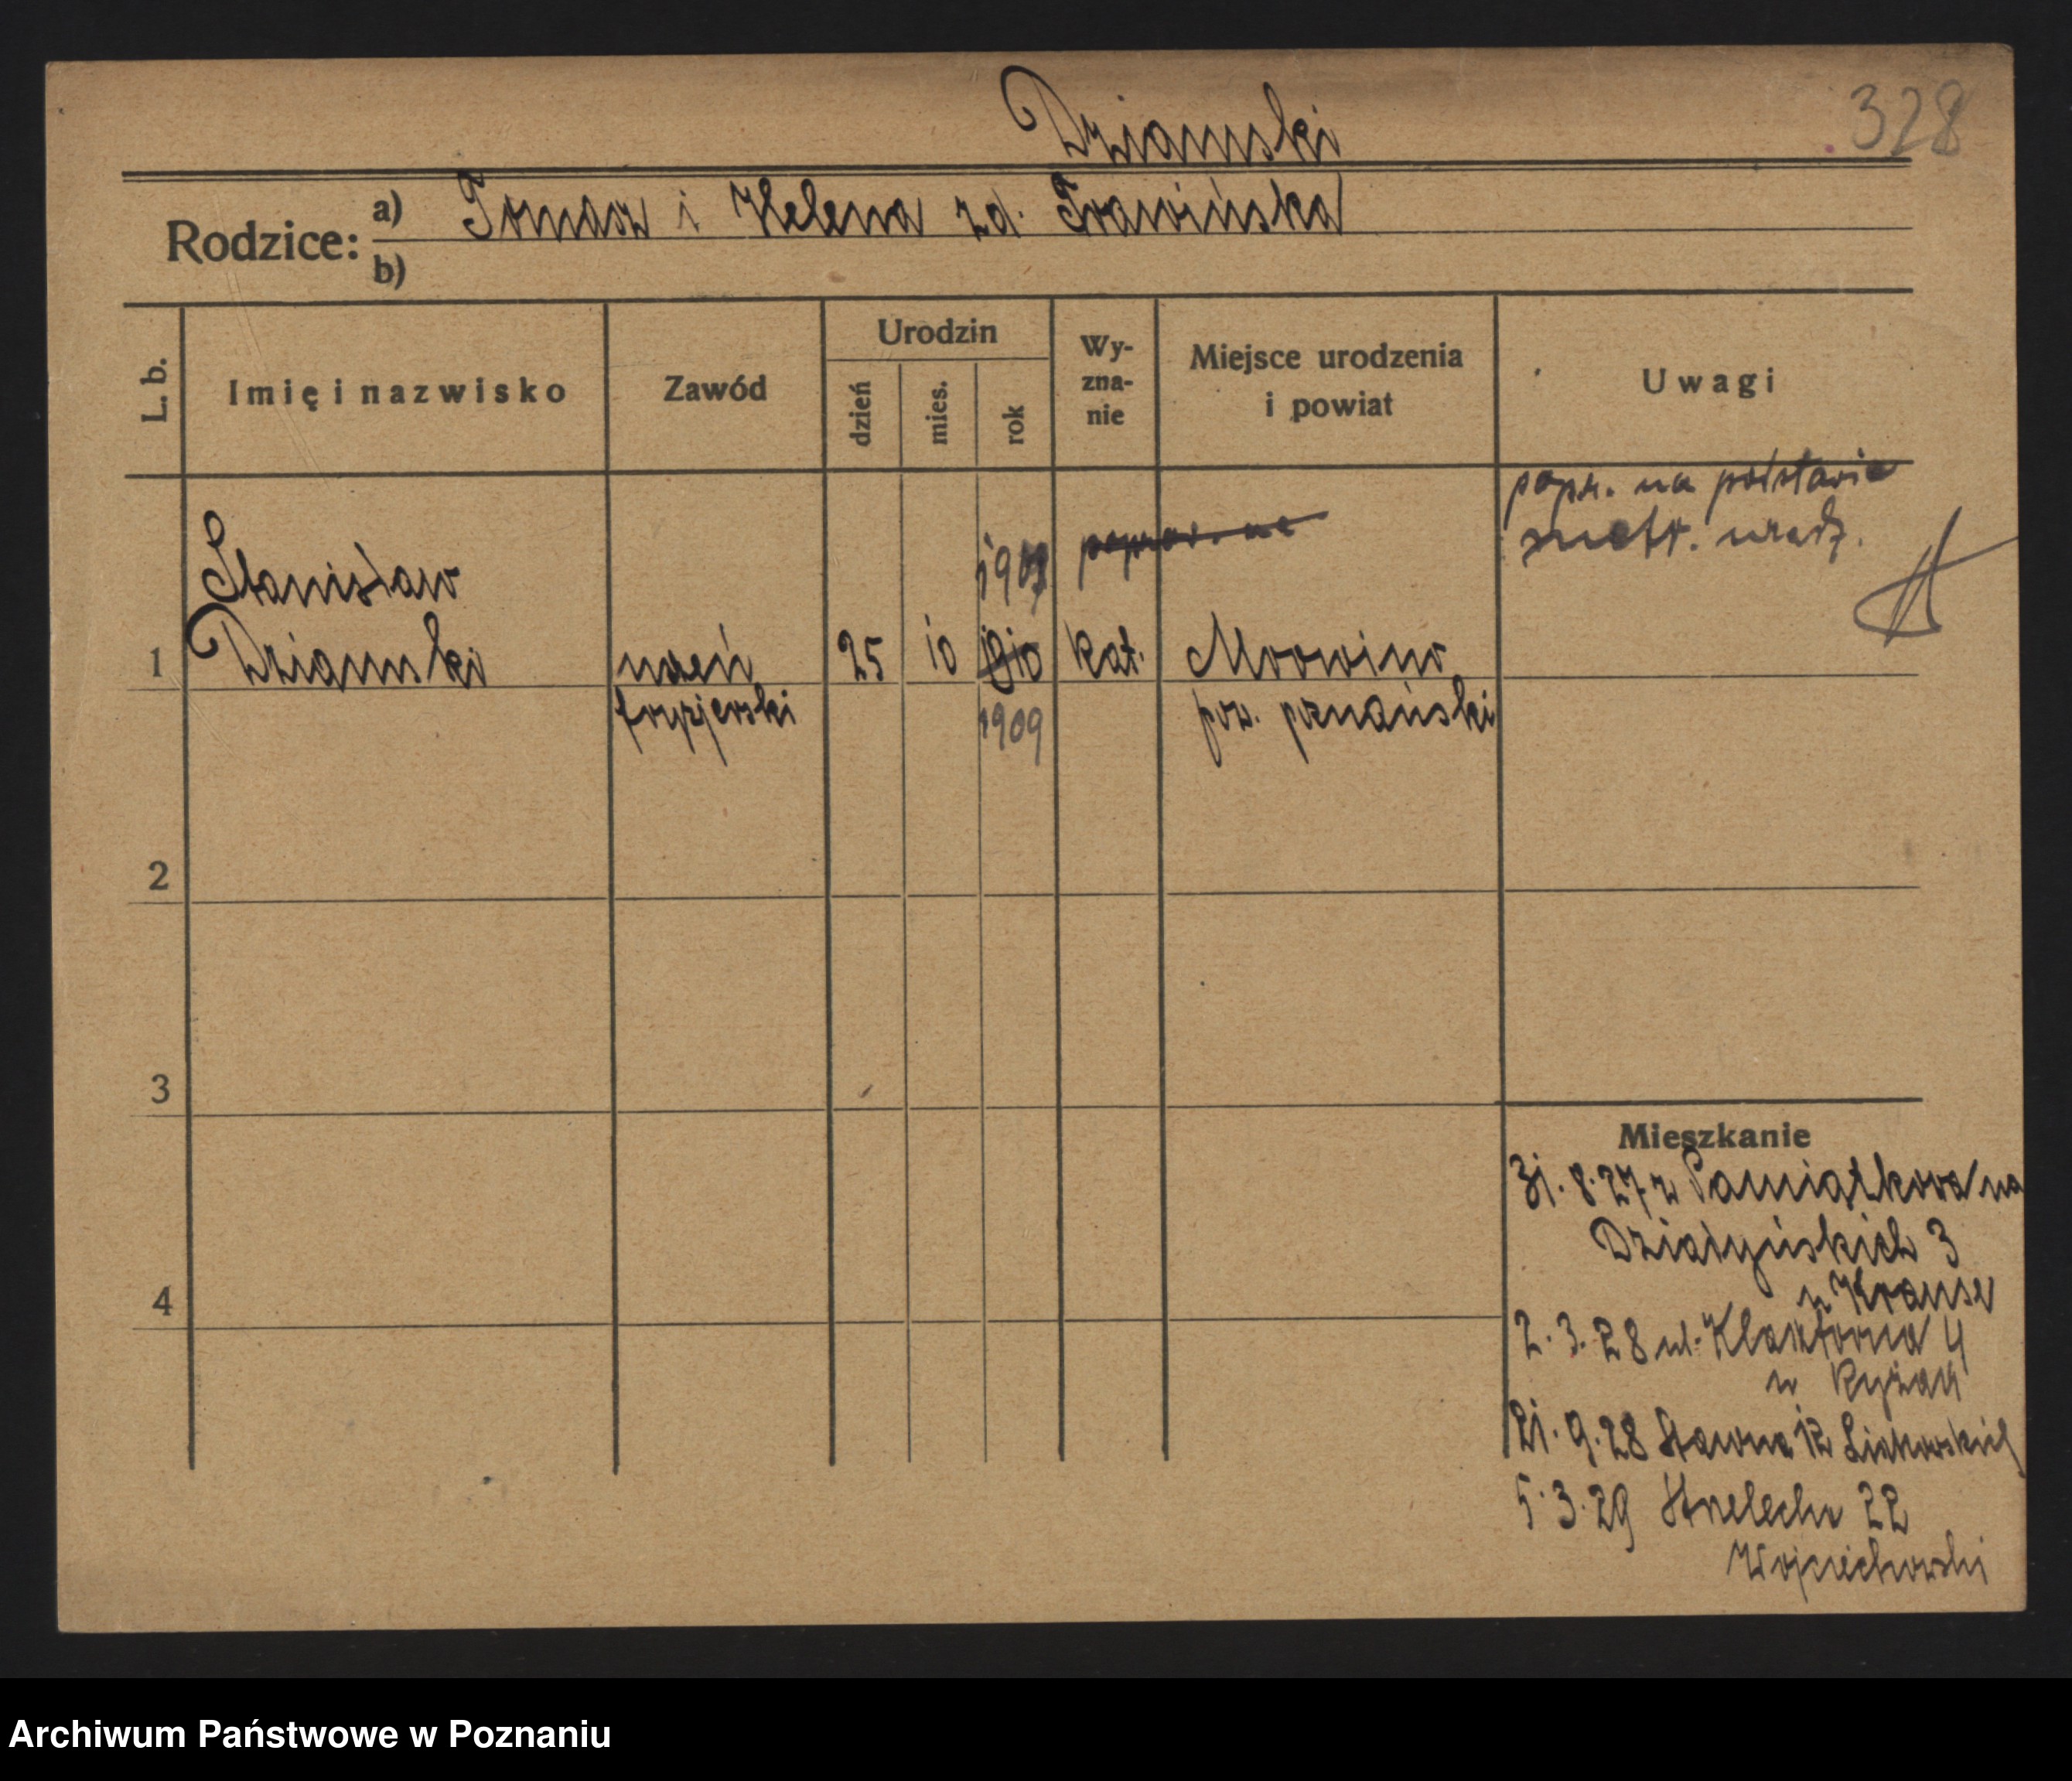 Dziamski
328
Rodzice: a) Tomasz i Helena zd. Trawińska
b)
L. b.
Imię i nazwisko
Zawód
Urodzin
dzień
mies.
rok
Wy-
zna-
nie
Miejsce urodzenia
i powiat
Uwagi
popr. na podstawie
metr. urodz.
popraw. na
Stanisław
1 Dziamski uczeń 25 10 1910 kat. Mrowino
fryzjerski 1909 pow. poznański
2
3
4
Mieszkanie
31.8.27 z Pamiątkowa na
Działyńskich 3
u Krause
2.3.28 ul. Klasztorna 4
u
21.9.28 Stawna 12
5.3.29 Strzelecka 22
Wojciechowski
Archiwum Państwowe w Poznaniu